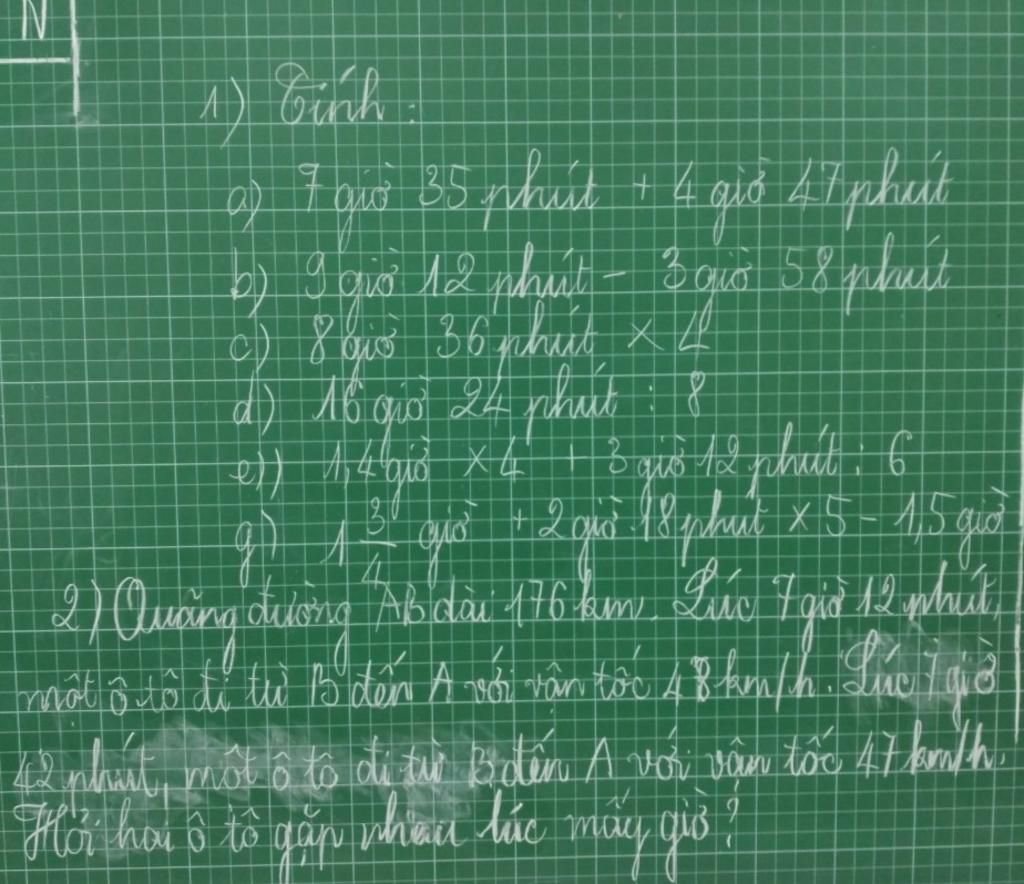 N
1) Tính:
a) 7 giờ 35 phút + 4 giờ 47 phút
b) 9 giờ 12 phút - 3 giờ 58 phút
c) 8 giờ 36 phút × 4
d) 16 giờ 24 phút : 8
e) 1,4 giờ × 4 + 3 giờ 12 phút : 6
g) 1 3/4 giờ + 2 giờ 18 phút × 5 - 1,5 giờ
2) Quãng đường AB dài 176 km. Lúc 7 giờ 12 phút,
một ô tô đi từ B đến A với vận tốc 48 km/h. Lúc 7 giờ
42 phút, một ô tô đi từ B đến A với vận tốc 47 km/h.
Hỏi hai ô tô gặp nhau lúc mấy giờ?